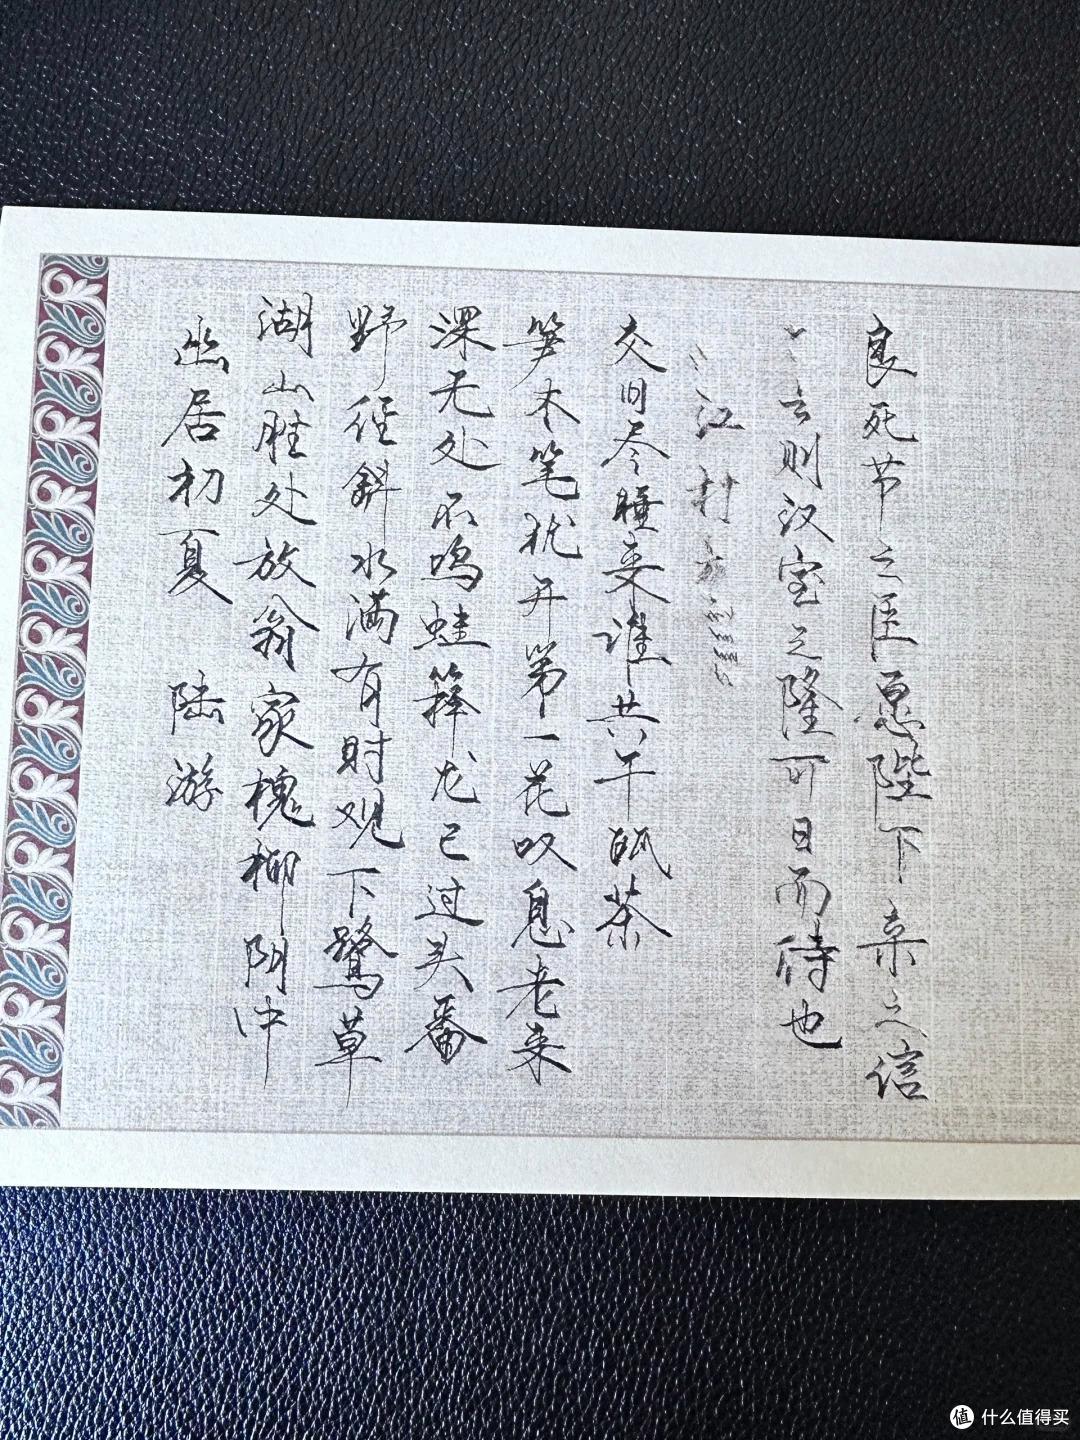 幽居初夏 陆游
湖山胜处放翁家槐柳阴中
野径斜水满有时观下鹭草
深无处不鸣蛙箨龙已过头番
笋木笔犹开第一花叹息老来
交旧尽睡来谁共午瓯茶
江村
良死节之臣愿陛下亲之信
之则汉室之隆可日而待也
值 什么值得买